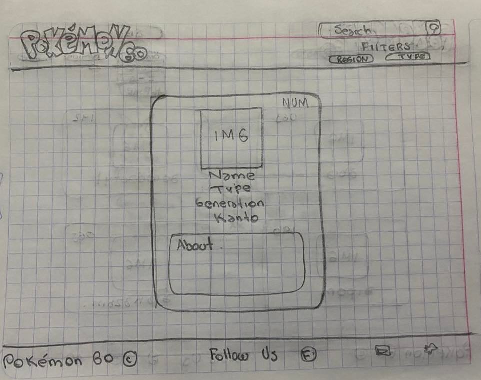 Pokémon GO
Search
FILTERS
REGION TYPE
NUM
IMG
Name
Type
Generation
Kanto
About
Pokémon GO ©
Follow Us F